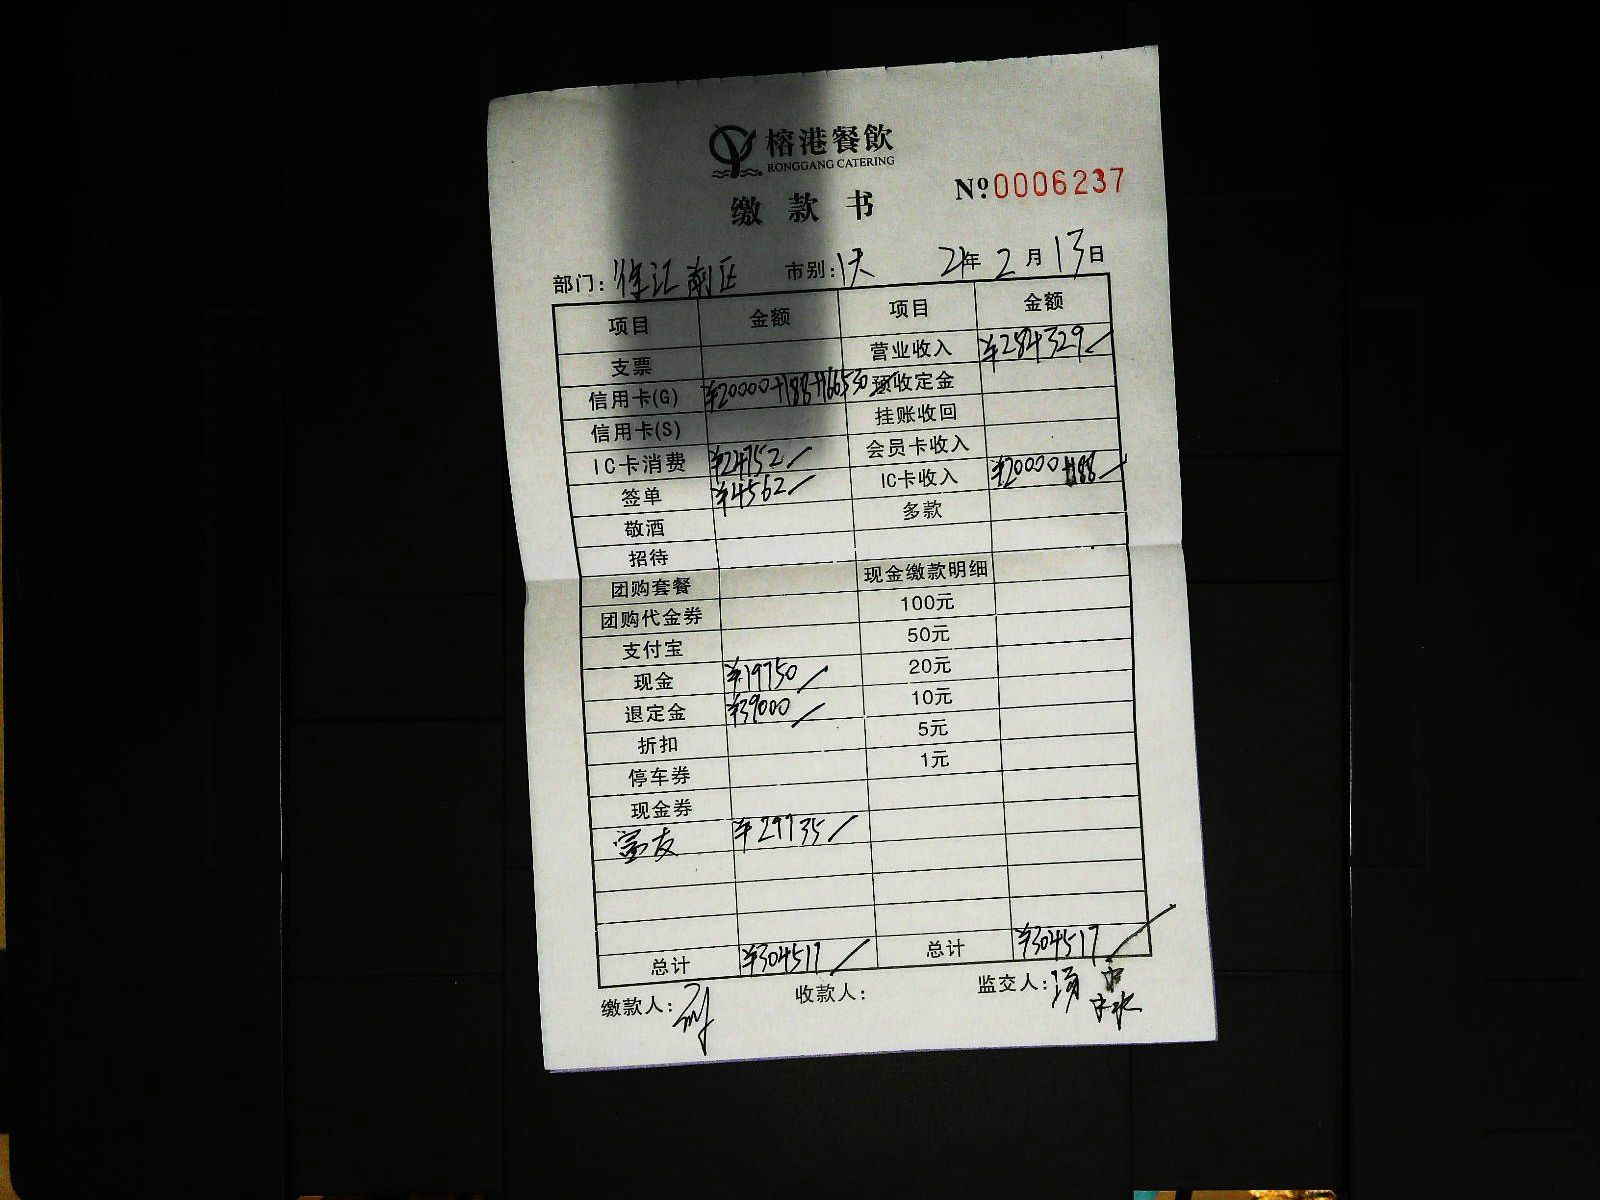 榕港餐飲
RONGGANG CATERING
缴款书
№0006237
部门: 徐汇南区 市别: 1天 21年 2月 13日
项目 金额 项目 金额
支票 营业收入 ¥284329
信用卡(G) ¥20000+188+166530 预收定金
信用卡(S) 挂账收回
IC卡消费 ¥24752 会员卡收入
签单 ¥4562 IC卡收入 ¥20000+188
敬酒 多款
招待
团购套餐 现金缴款明细
团购代金券 100元
支付宝 50元
现金 ¥19750 20元
退定金 ¥39000 10元
折扣 5元
停车券 1元
现金券
富友 ¥29735
总计 ¥304517 总计 ¥304517
缴款人: 收款人: 监交人: